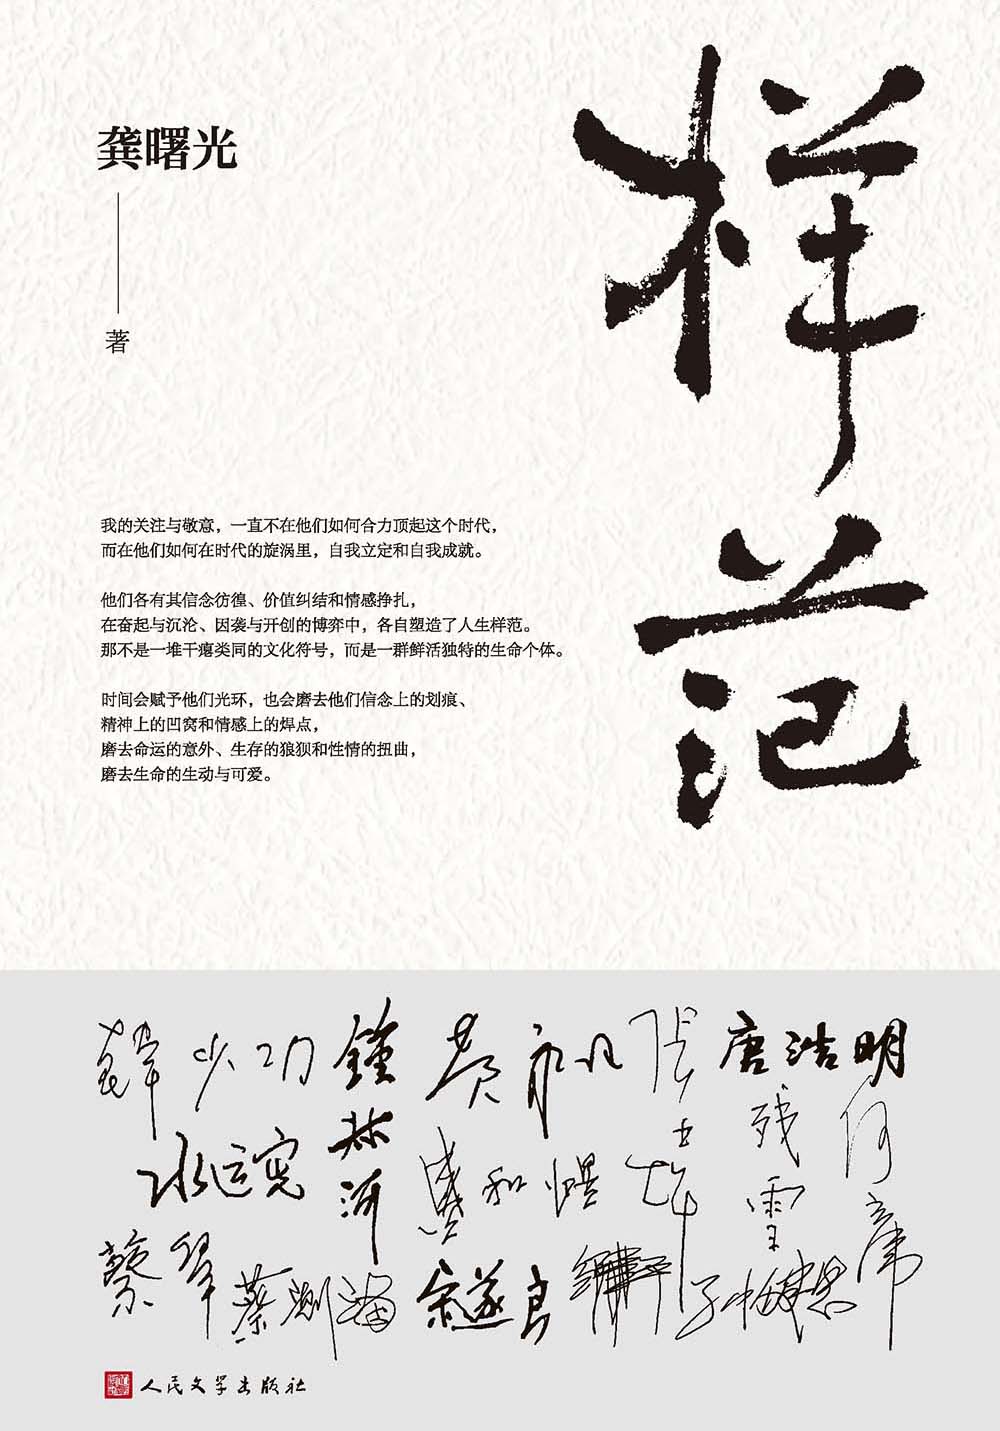 样范
龚曙光
著
我的关注与敬意，一直不在他们如何合力顶起这个时代，
而在他们如何在时代的旋涡里，自我立定和自我成就。
他们各有其信念彷徨、价值纠结和情感挣扎，
在奋起与沉沦、因袭与开创的博弈中，各自塑造了人生样范。
那不是一堆干瘪类同的文化符号，而是一群鲜活独特的生命个体。
时间会赋予他们光环，也会磨去他们信念上的划痕、
精神上的凹窝和情感上的焊点，
磨去命运的意外、生存的狼狈和性情的扭曲，
磨去生命的生动与可爱。
韩少功
鍾叔河
黄永玉
唐浩明
残雪
何立伟
水运宪
蔡皋
蔡测海
余遂良
人民文学出版社